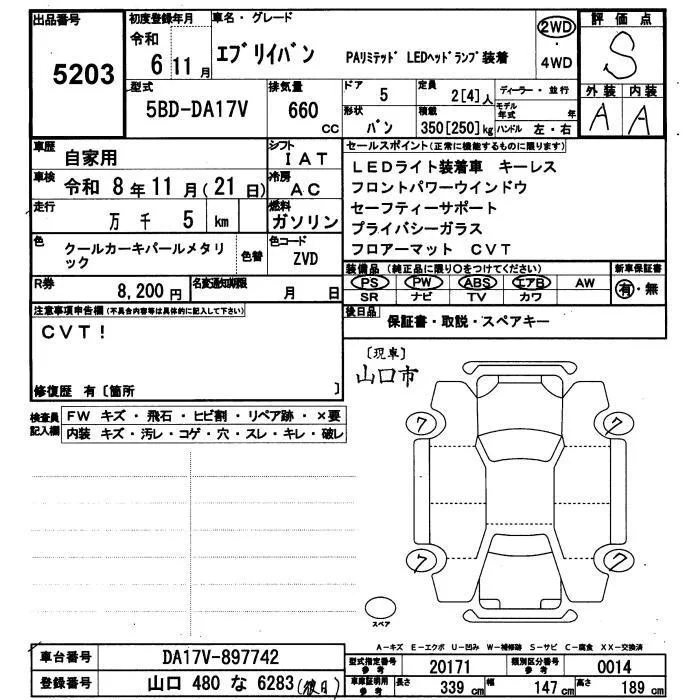 出品番号
5203
初度登録年月
令和
6 11月
車名・グレード
エブリイバン PAリミテッド LEDヘッドランプ装着
2WD・4WD
評価点
S
型式
5BD-DA17V
排気量
660 cc
ドア
5
定員
2[4]人
ディーラー・並行
形状
バン
積載
350[250]kg
モデル年式 年
ハンドル 左・右
外装 内装
A A
車歴
自家用
シフト
IAT
車検
令和 8年11月(21日)
冷房
AC
走行
万 千 5 km
燃料
ガソリン
色
クールカーキパールメタリック
色替
色コード
ZVD
R券
8,200円
名変通知期限
月 日
セールスポイント(正常に機能するものに限ります)
LEDライト装着車 キーレス
フロントパワーウインドウ
セーフティーサポート
プライバシーガラス
フロアーマット CVT
装備品(純正品に限り○をつけてください)
PS PW ABS エアB AW
SR ナビ TV カワ
新車保証書
有・無
後日品
保証書・取説・スペアキー
注意事項申告欄(不具合内容等は具体的に記入して下さい)
CVT!
修復歴 有〔箇所 〕
検査員記入欄
FW キズ・飛石・ヒビ割・リペア跡・×要
内装 キズ・汚レ・コゲ・穴・スレ・キレ・破レ
〔現車〕
山口市
7 7
7 7
スペア
A-キズ E-エクボ U-凹み W-補修跡 S-サビ C-腐食 XX-交換済
車台番号
DA17V-897742
登録番号
山口 480 な 6283(後日)
型式指定番号参考
20171
類別区分番号参考
0014
車庫証明用参考
長さ 339cm 幅 147cm 高さ 189cm